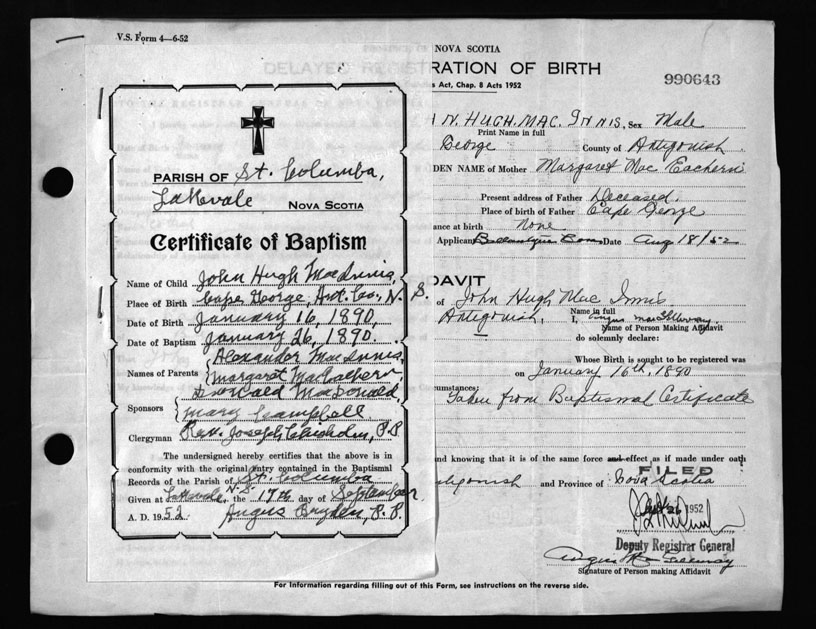 V.S. Form 4—6-52
NOVA SCOTIA
DELAYED REGISTRATION OF BIRTH
s Act, Chap. 8 Acts 1952
990643
PARISH OF St. Columba,
Lakevale NOVA SCOTIA
Certificate of Baptism
Name of Child John Hugh MacInnis
Place of Birth Cape George, Ant. Co., N. S.
Date of Birth January 16, 1890,
Date of Baptism January 26, 1890.
Names of Parents Alexander MacInnis,
Margaret MacEachern
Sponsors Donald MacDonald,
Mary Campbell
Clergyman Rev. Joseph Chisholm, P.P.
The undersigned hereby certifies that the above is in
conformity with the original entry contained in the Baptismal
Records of the Parish of St. Columba
Given at Lakevale, N.S. the 17th day of September
A. D. 1952 Angus Bryden, P. P.
N. HUGH. MAC. INNIS, Sex Male
Print Name in full
George County of Antigonish
DEN NAME of Mother Margaret Mac Eachern
Present address of Father Deceased.
Place of birth of Father Cape George
ance at birth None
Applicant Date Aug 18/52
DAVIT
of John Hugh Mac Innis
Name in full
Antigonish, I, Angus
Name of Person Making Affidavit
do solemnly declare:
Whose Birth is sought to be registered was
on January 16th, 1890
cumstances:
Taken from Baptismal Certificate
and knowing that it is of the same force and effect as if made under oath
FILED
tigonish and Province of Nova Scotia
26 1952
Deputy Registrar General
Angus
Signature of Person making Affidavit
For information regarding filling out of this Form, see instructions on the reverse side.